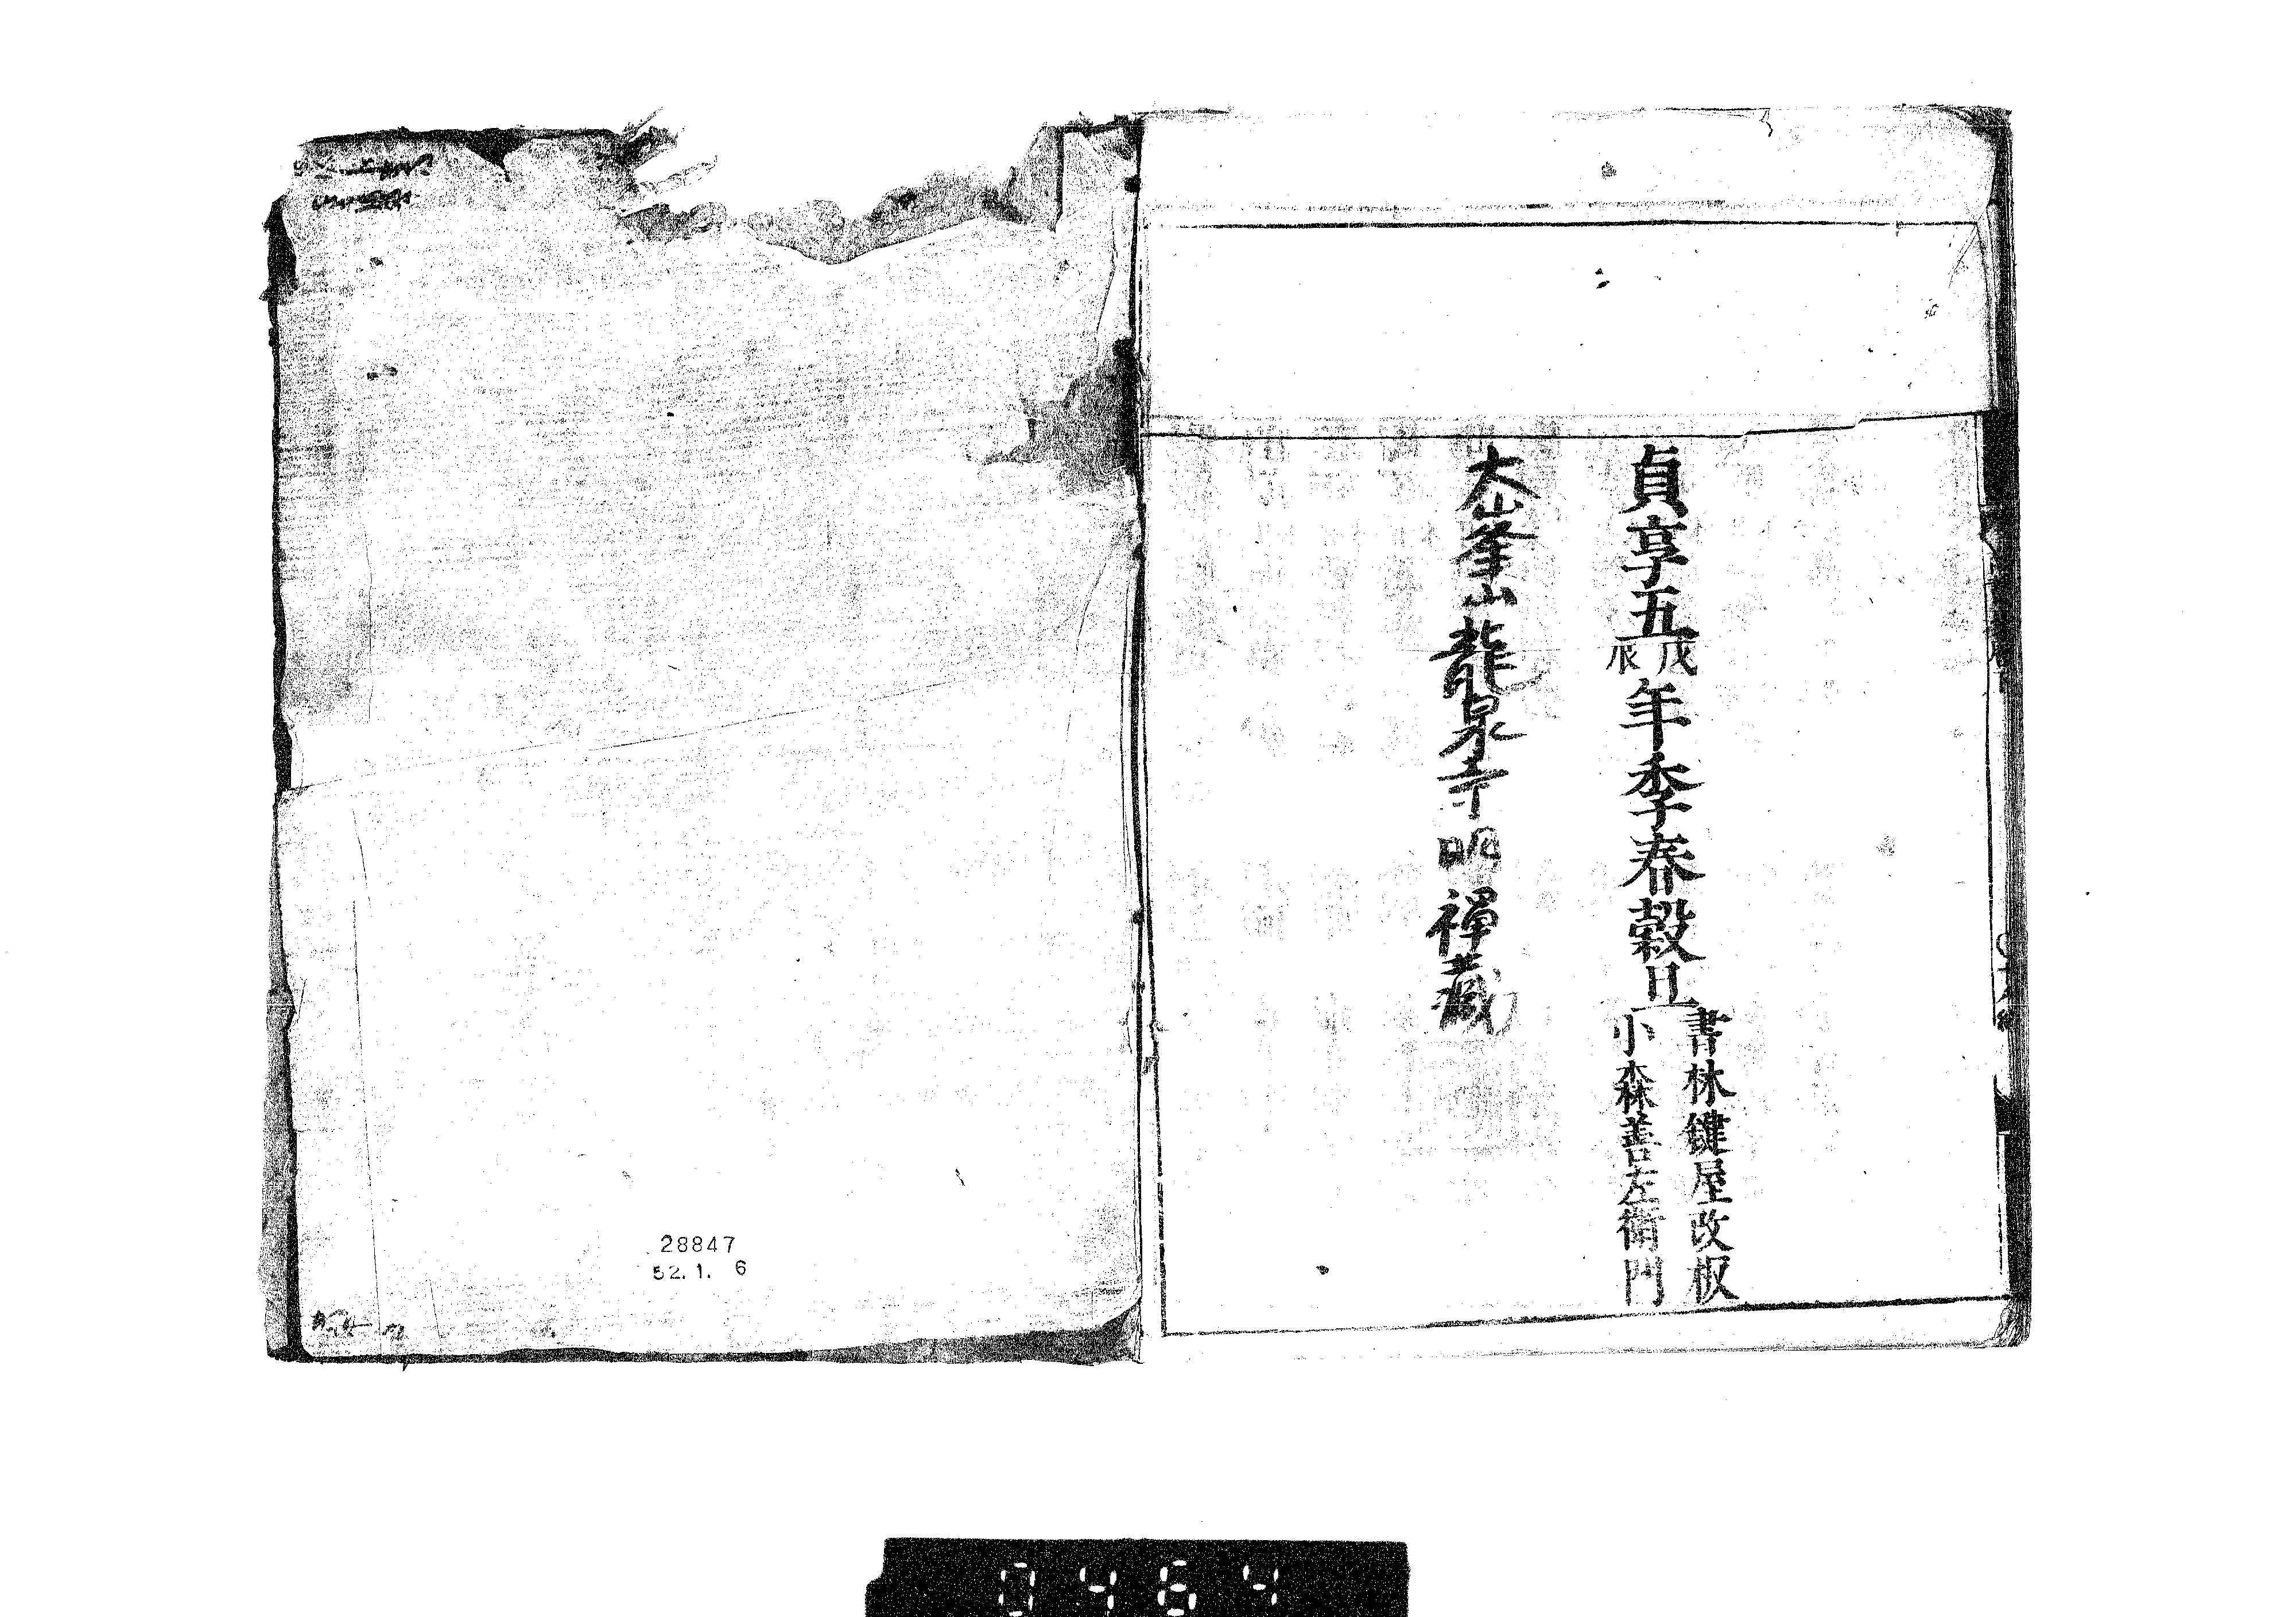 貞享五戊辰年季春穀旦
書林鍵屋改板
小森善左衛門
大峯山龍泉寺明禅蔵
28847
52.1. 6
0464